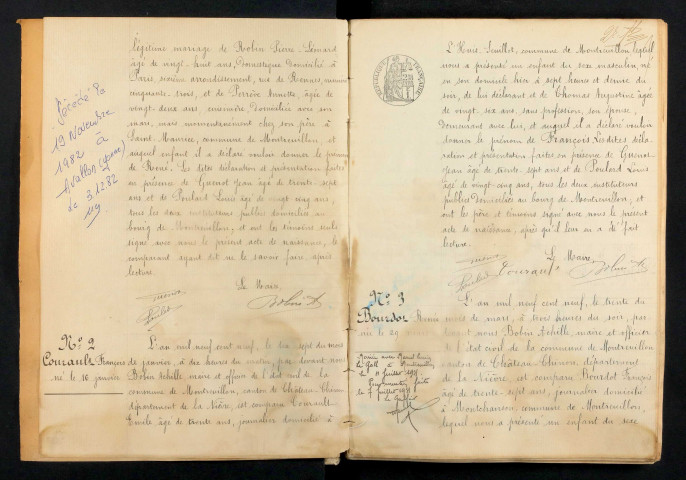 légitime mariage de Robin Pierre Léonard
âgé de vingt-huit ans, Domestique Domicilié à
Paris sixième arrondissement, rue de Rennes, numéro
cinquante-trois, et de Perrère Annette, âgée de
vingt-deux ans, couturière Domiciliée avec son
mari, mais momentanément chez son père à
Saint-Maurice, commune de Montreuillon, et
auquel enfant il a déclaré vouloir donner le prénom
de René. Les dites déclaration et présentation faites
en présence de Guenot Jean âgé de trente-sept
ans et de Poulard Louis âgé de vingt cinq ans,
tous les deux instituteurs publics domiciliés au
bourg de Montreuillon, et ont les témoins seuls
signé avec nous le présent acte de naissance, le
comparant ayant dit ne le savoir faire, après
lecture.
Le Maire,
Décédé le
19 Novembre
1982 à
Avallon (Yonne)
Le 3.12.82
N° 2
Courault François
né le 16 janvier
L'an mil neuf cent neuf, le dix-sept du mois
de janvier, à dix heures du matin, par devant nous
Robin Achille, maire et officier de l'état civil de la
commune de Montreuillon, canton de Château-Chinon
département de la Nièvre, est comparu Courault
Emile âgé de trente ans, journalier domicilié à
L'Huis-Seuillot, commune de Montreuillon, lequel
nous a présenté un enfant du sexe masculin, né
en son domicile hier à sept heures et demie du
soir, de lui déclarant et de Thomas Augustine âgée
de vingt-six ans, sans profession, son épouse,
demeurant avec lui, et auquel il a déclaré vouloir
donner le prénom de François Les dites décla-
ration et présentation faites en présence de Guenot
Jean âgé de trente-sept ans et de Poulard Louis
âgé de vingt-cinq ans, tous les deux instituteurs
publics domiciliés au bourg de Montreuillon, et
ont les père et témoins signé avec nous le présent
acte de naissance, après qu'il leur en a été fait
lecture.
Le Maire,
Courault
N° 3
Bourdot
né le 29 mars
L'an mil neuf cent neuf, le trente du
mois de mars, à trois heures du soir, par
devant nous Robin Achille, maire et officier
de l'état civil de la commune de Montreuillon
canton de Château-Chinon, département
de la Nièvre, est comparu Bourdot François
âgé de trente-sept ans, journalier domicilié
à Montchanson, commune de Montreuillon,
lequel nous a présenté un enfant du sexe